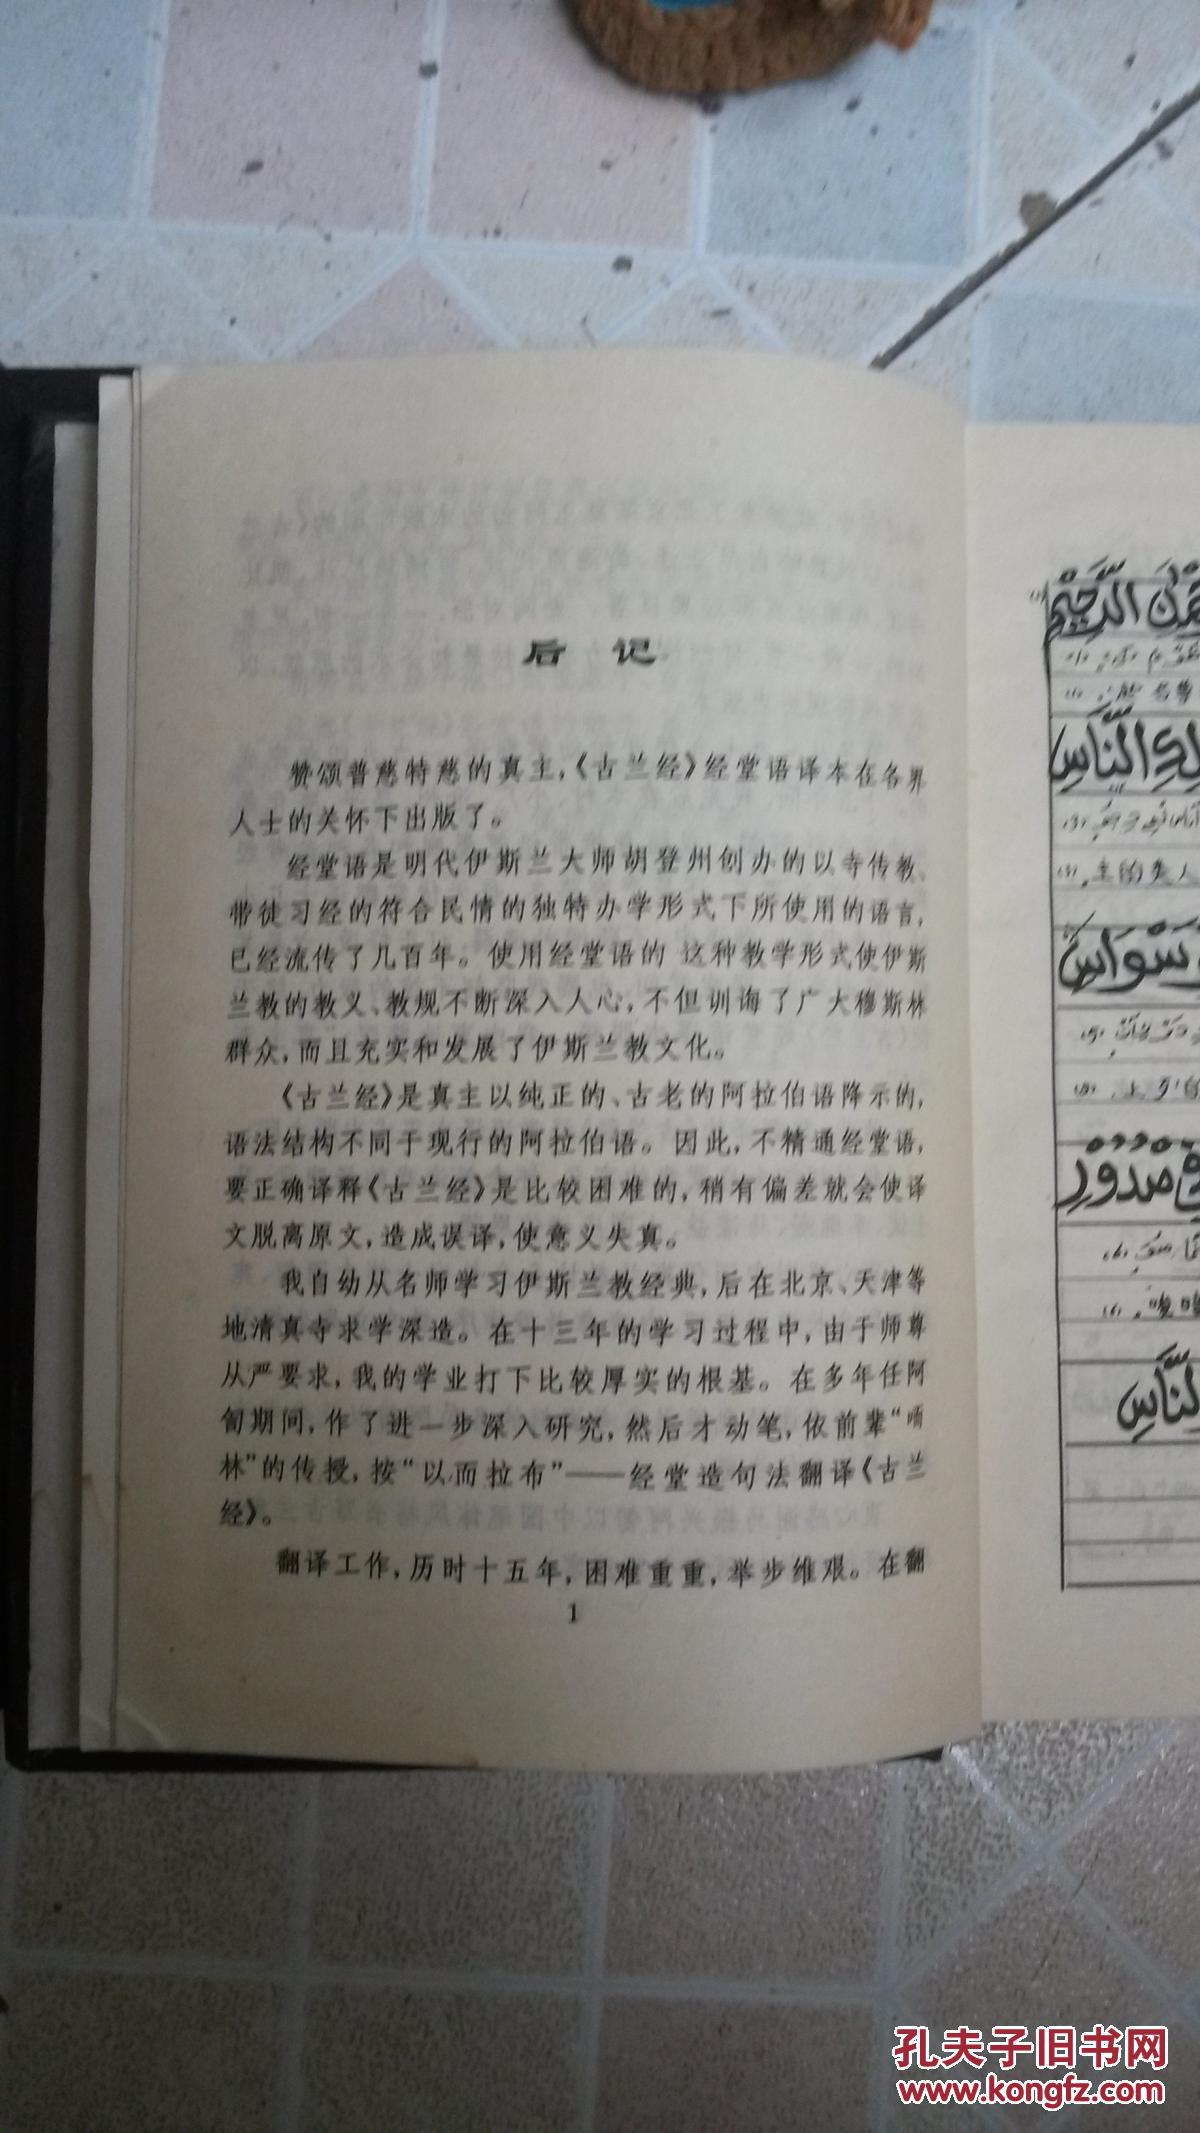 后 记
赞颂普慈特慈的真主,《古兰经》经堂语译本在各界
人士的关怀下出版了。
经堂语是明代伊斯兰大师胡登州创办的以寺传教、
带徒习经的符合民情的独特办学形式下所使用的语言,
已经流传了几百年。使用经堂语的 这种教学形式使伊斯
兰教的教义、教规不断深入人心,不但训诲了广大穆斯林
群众,而且充实和发展了伊斯兰教文化。
《古兰经》是真主以纯正的、古老的阿拉伯语降示的,
语法结构不同于现行的阿拉伯语。因此,不精通经堂语,
要正确译释《古兰经》是比较困难的,稍有偏差就会使译
文脱离原文,造成误译,使意义失真。
我自幼从名师学习伊斯兰教经典,后在北京、天津等
地清真寺求学深造。在十三年的学习过程中,由于师尊
从严要求,我的学业打下比较厚实的根基。在多年任阿
訇期间,作了进一步深入研究,然后才动笔,依前辈“
林”的传授,按“以而拉布”——经堂造句法翻译《古兰
经》。
翻译工作,历时十五年,困难重重,举步维艰。在翻
1
الرَّحِيْمِ
النَّاسِ
(3).主的 人
صُدُوْرِ
النَّاسِ
孔夫子旧书网
www.kongfz.com